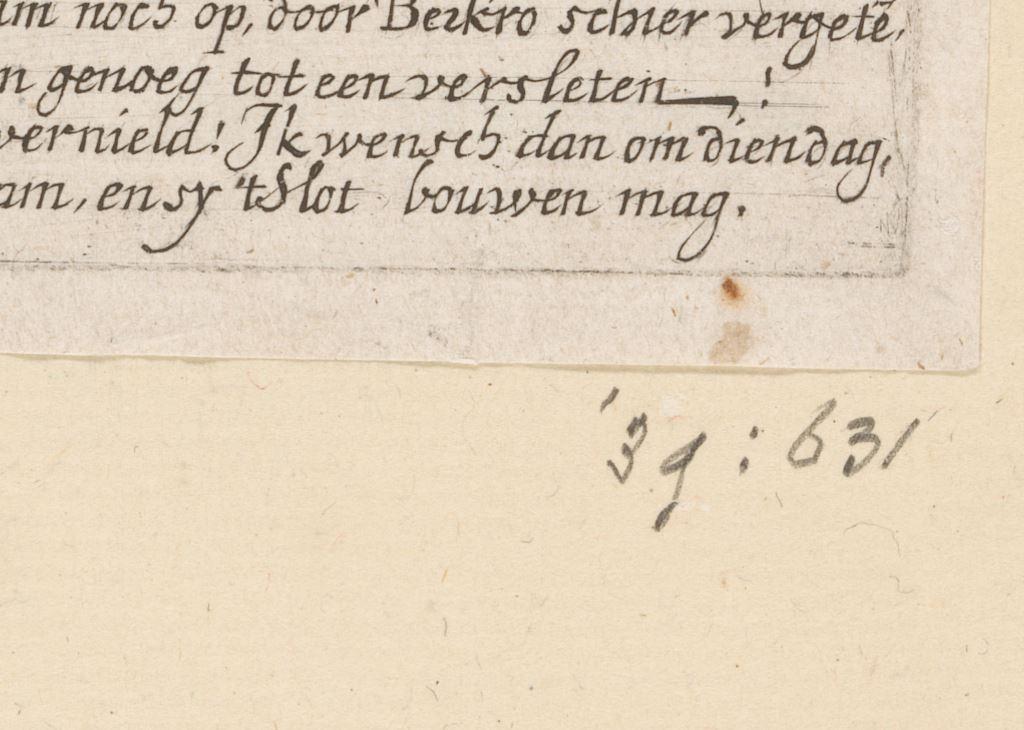 noch op, door Berkro schier vergetē,
n genoeg tot een versleten __, !
vernield! Ik wensch dan om dien dag,
am, en sy 't Slot bouwen mag.
'39:631